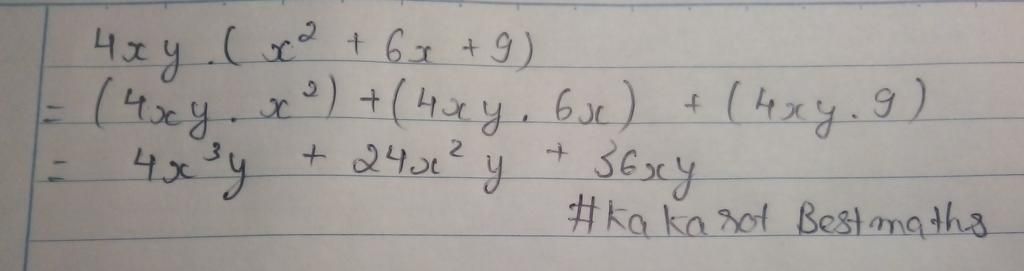 4xy.(x² + 6x + 9)
= (4xy. x²) + (4xy. 6x) + (4xy. 9)
= 4x³y + 24x²y + 36xy
#Kakarot Bestmaths